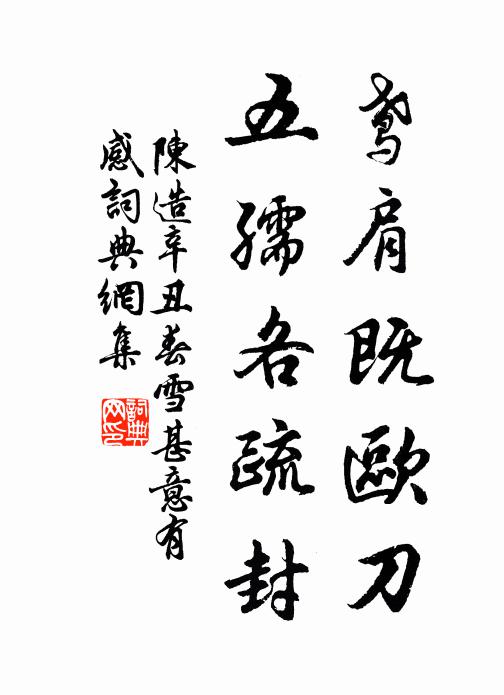 鸢肩既歐刀
五孺各疏封
陳造辛丑春雪甚意有
感詞典網集
詞典网印